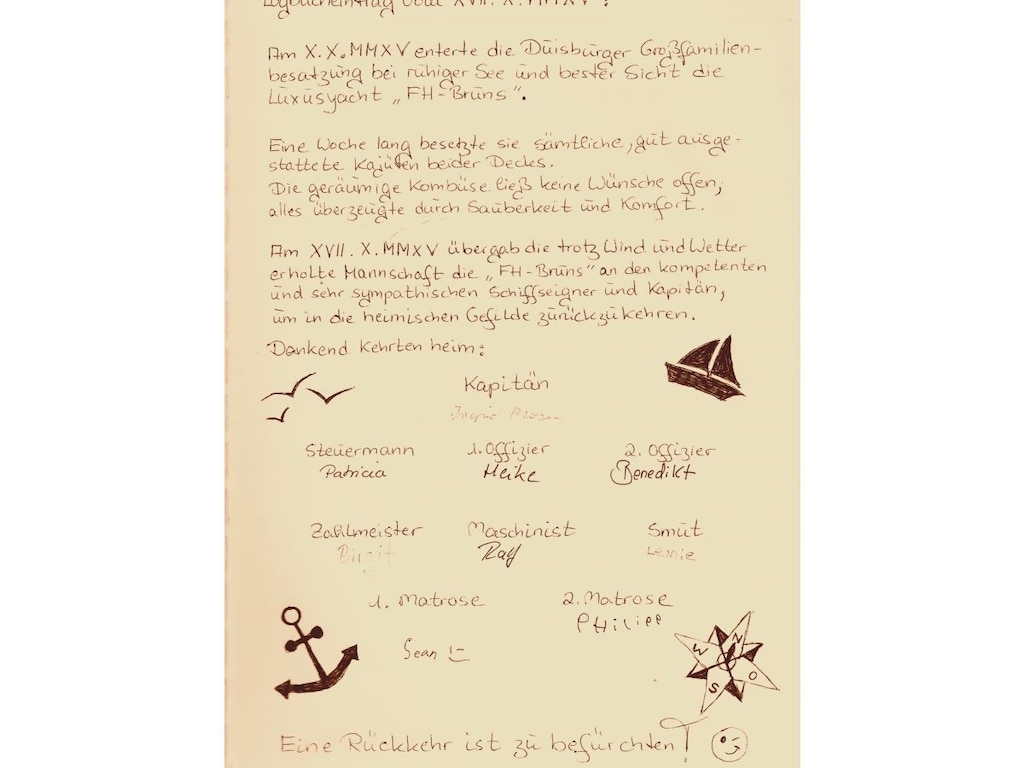 Logbucheintrag vom XVII.X.MMXV:
Am X.X.MMXV enterte die Duisburger Großfamilien-
besatzung bei ruhiger See und bester Sicht die
Luxusyacht „FH-Bruns".
Eine Woche lang besetzte sie sämtliche, gut ausge-
stattete Kajüten beider Decks.
Die geräumige Kombüse ließ keine Wünsche offen,
alles überzeugte durch Sauberkeit und Komfort.
Am XVII.X.MMXV übergab die trotz Wind und Wetter
erholte Mannschaft die „FH-Bruns" an den kompetenten
und sehr sympathischen Schiffseigner und Kapitän,
um in die heimischen Gefilde zurückzukehren.
Dankend kehrten heim:
Kapitän
Ingrid
Steuermann 1. Offizier 2. Offizier
Patricia Heike Benedikt
Zahlmeister Maschinist Smut
Birgit Ralf Leonie
1. Matrose 2. Matrose
PHiliPP
Sean !-
N
W
O
S
Eine Rückkehr ist zu befürchten!